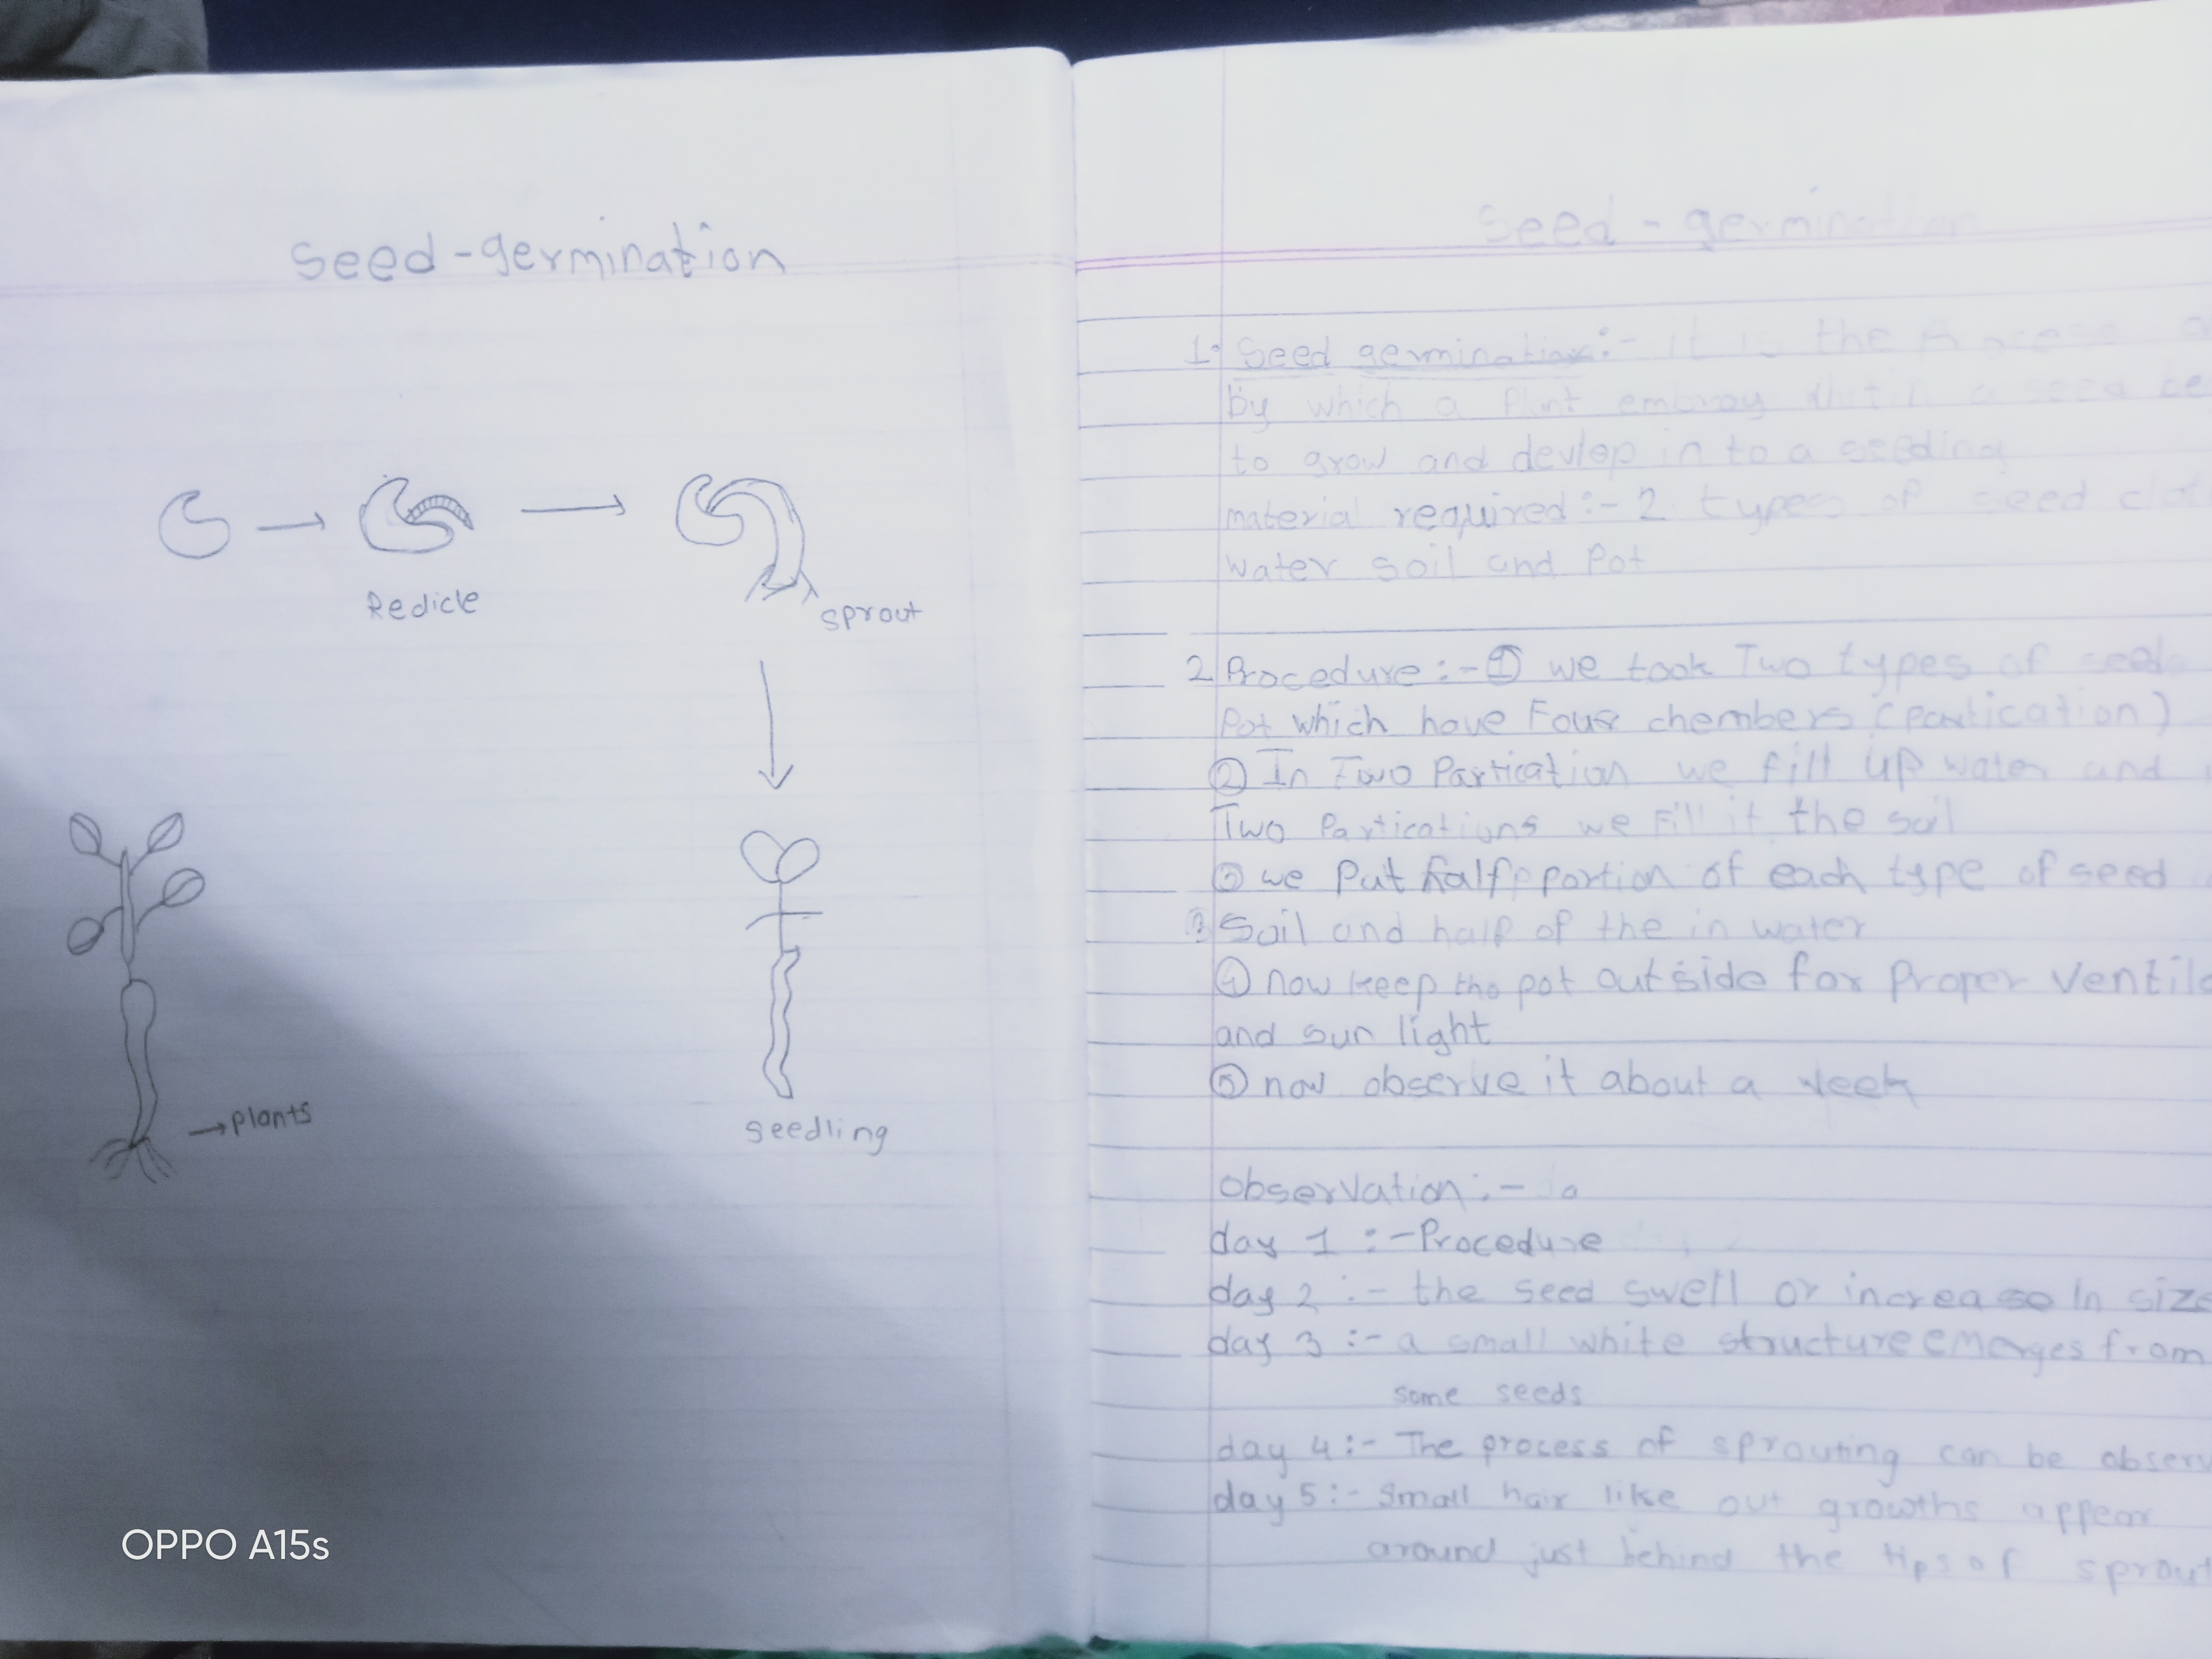 Seed-germination
Redicle
sprout
→plants
seedling
OPPO A15s
Seed - germination
1. Seed germination:- it is the Process
by which a Plant embroy a seed be
to grow and devlop in to a seeding
material required:- 2 types of seed clot
water soil and Pot
2 Procedure:- ① we took Two types of seeds
Pot which have Four chembers (partication)
② In Two Partication we fill up water and
Two Partications we Fill it the soil
③ we Put half portion of each type of seed
Soil and half of the in water
④ now keep the pot outside for Proper ventila
and sun light
⑤ now observe it about a week
observation:-
day 1 :- Procedure
day 2 :- the seed swell or increase In size
day 3 :- a small white structure emerges from
some seeds
day 4:- The process of sprouting can be observ
day 5:- Small hair like out growths appear
around just behind the tips of sprout